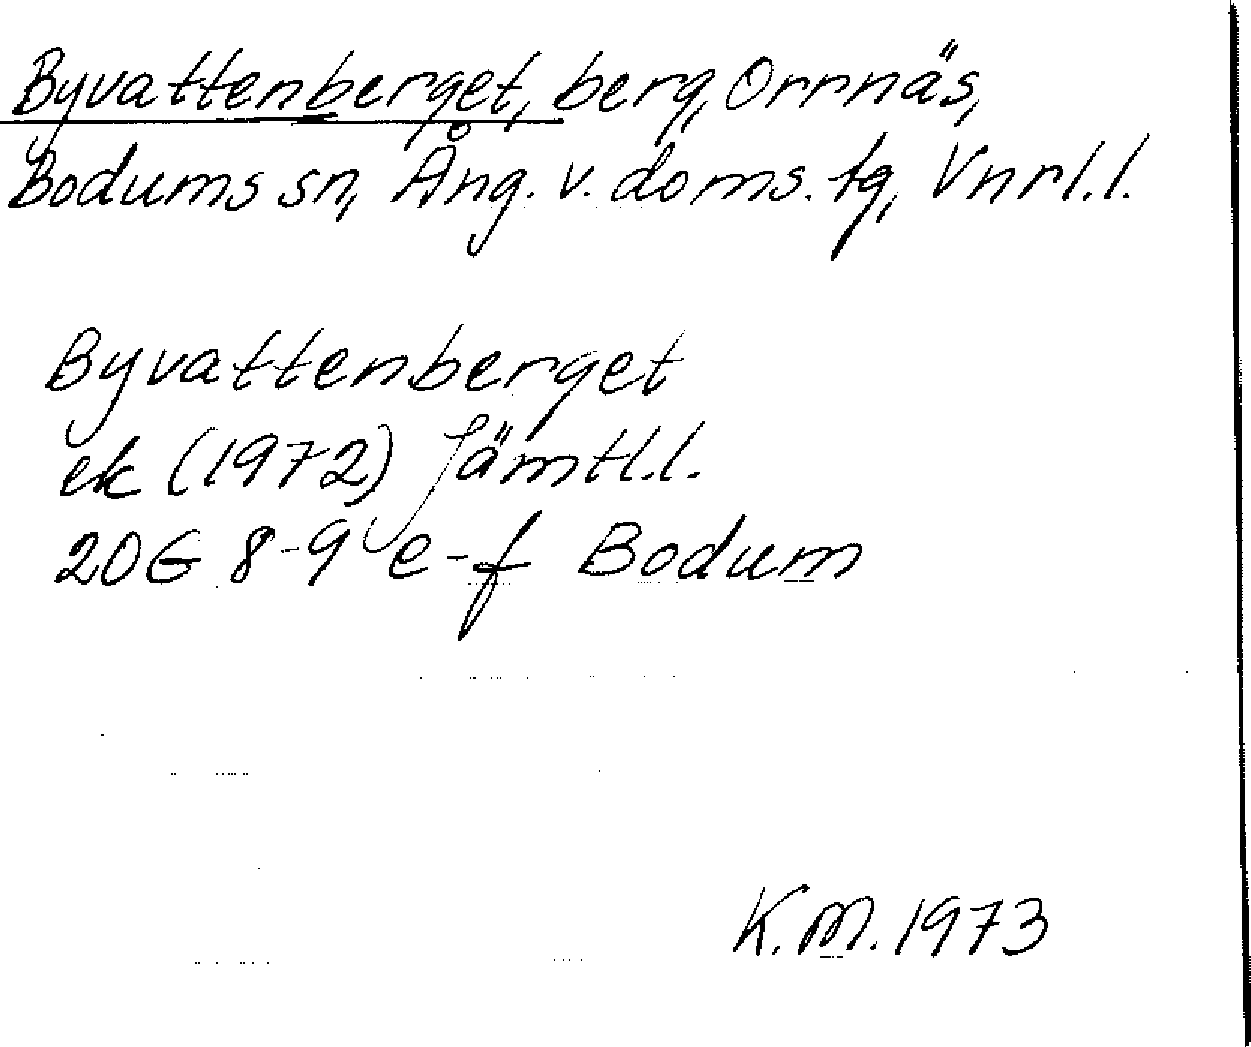 Byvattenberget, berg, Orrnäs,
Bodums sn, Ång. v. doms. tg, Vnrl.l.
Byvattenberget
ek (1972) Jämtl.l.
20G 8-9 e-f Bodum
K.M. 1973